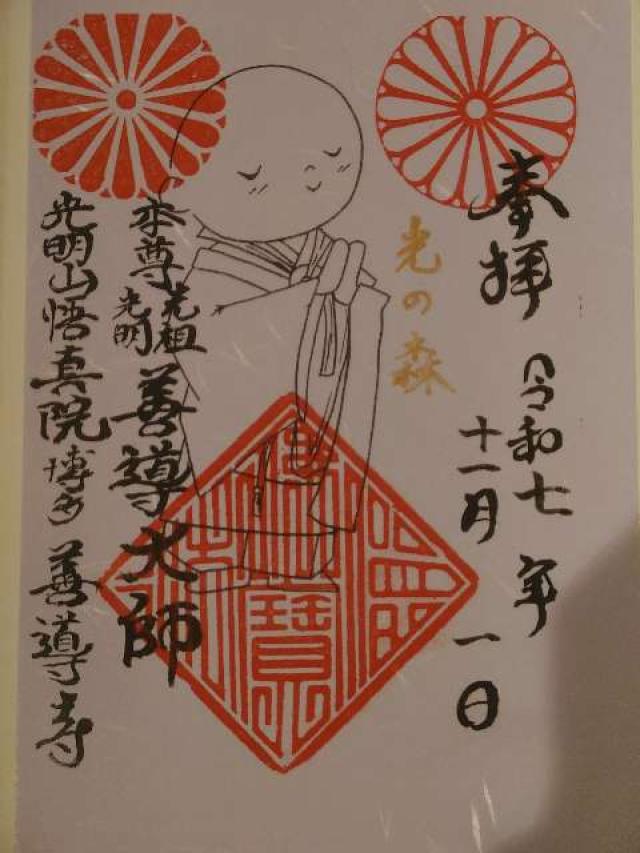 奉拝
令和七年
十一月一日
光の森
本尊
光祖
光明
善導大師
光明山悟真院
博多
善導寺